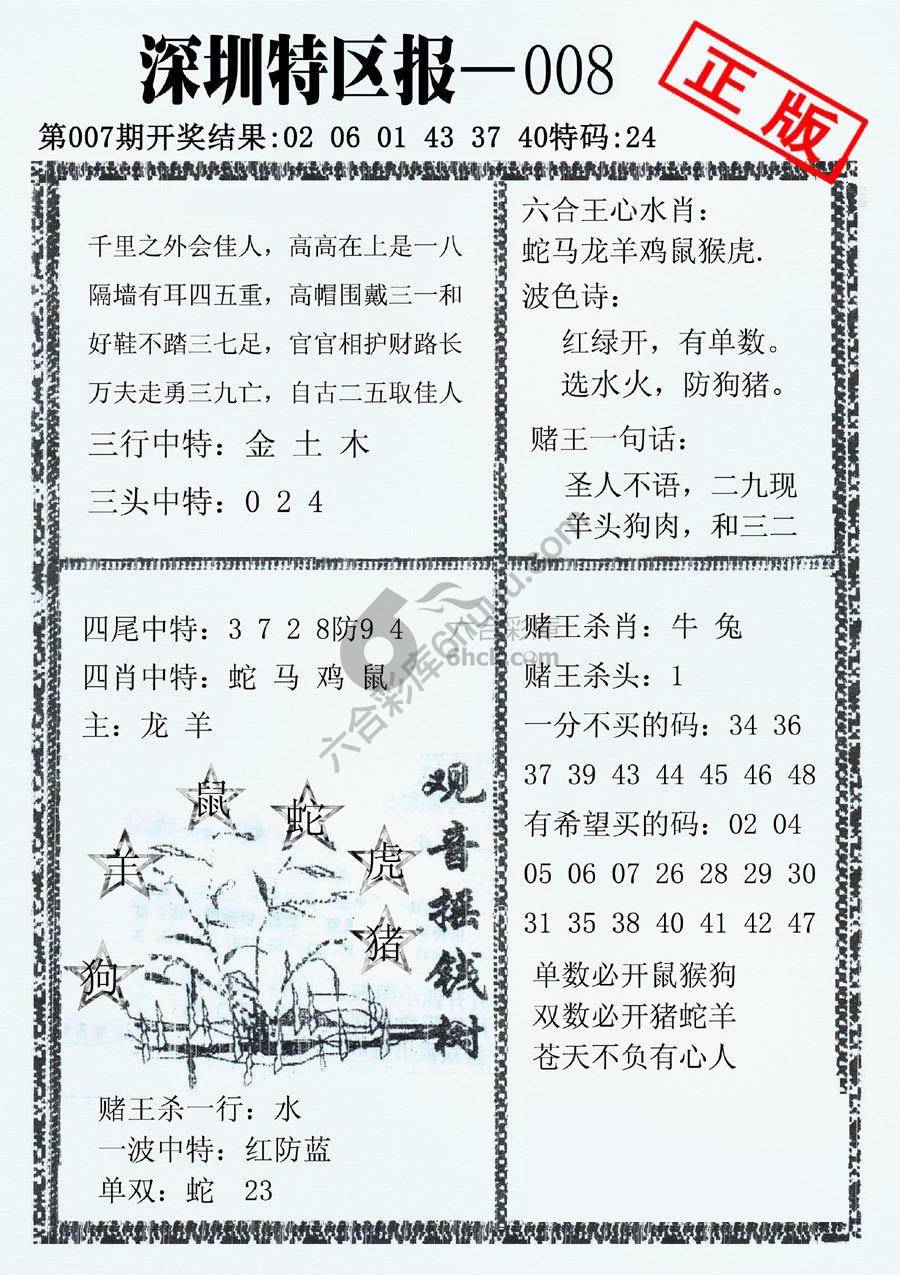 深圳特区报—008
正版
第007期开奖结果:02 06 01 43 37 40特码:24
千里之外会佳人，高高在上是一八
隔墙有耳四五重，高帽围戴三一和
好鞋不踏三七足，官官相护财路长
万夫走勇三九亡，自古二五取佳人
三行中特：金 土 木
三头中特：0 2 4
六合王心水肖：
蛇马龙羊鸡鼠猴虎.
波色诗：
红绿开，有单数。
选水火，防狗猪。
赌王一句话：
圣人不语，二九现
羊头狗肉，和三二
四尾中特：3 7 2 8防9 4
四肖中特：蛇 马 鸡 鼠
主：龙 羊
鼠
蛇
羊
虎
猪
狗
观音摇钱树
赌王杀一行：水
一波中特：红防蓝
单双：蛇 23
赌王杀肖：牛 兔
赌王杀头：1
一分不买的码：34 36
37 39 43 44 45 46 48
有希望买的码：02 04
05 06 07 26 28 29 30
31 35 38 40 41 42 47
单数必开鼠猴狗
双数必开猪蛇羊
苍天不负有心人
六合彩库6hutu.com